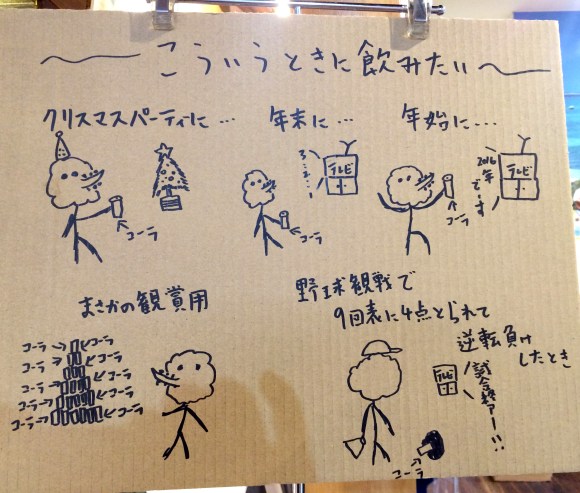 〜こういうときに飲みたい〜
クリスマスパーティに…
年末に…
年始に…
コーラ
テレビ
コーラ
テレビ
2016年
でーす
コーラ
まさかの観賞用
コーラ
コーラ
コーラ
コーラ
コーラ
コーラ
コーラ
コーラ
コーラ
コーラ
野球観戦で
9回表に4点とられて
逆転負け
したとき
テレビ
試合終アー!!
コーラ